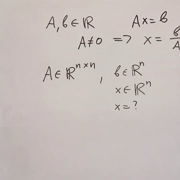 A, b ∈ ℝ Ax = b
A ≠ 0 ⇒ x = b/A
A ∈ ℝⁿˣⁿ, b ∈ ℝⁿ
x ∈ ℝⁿ
x = ?